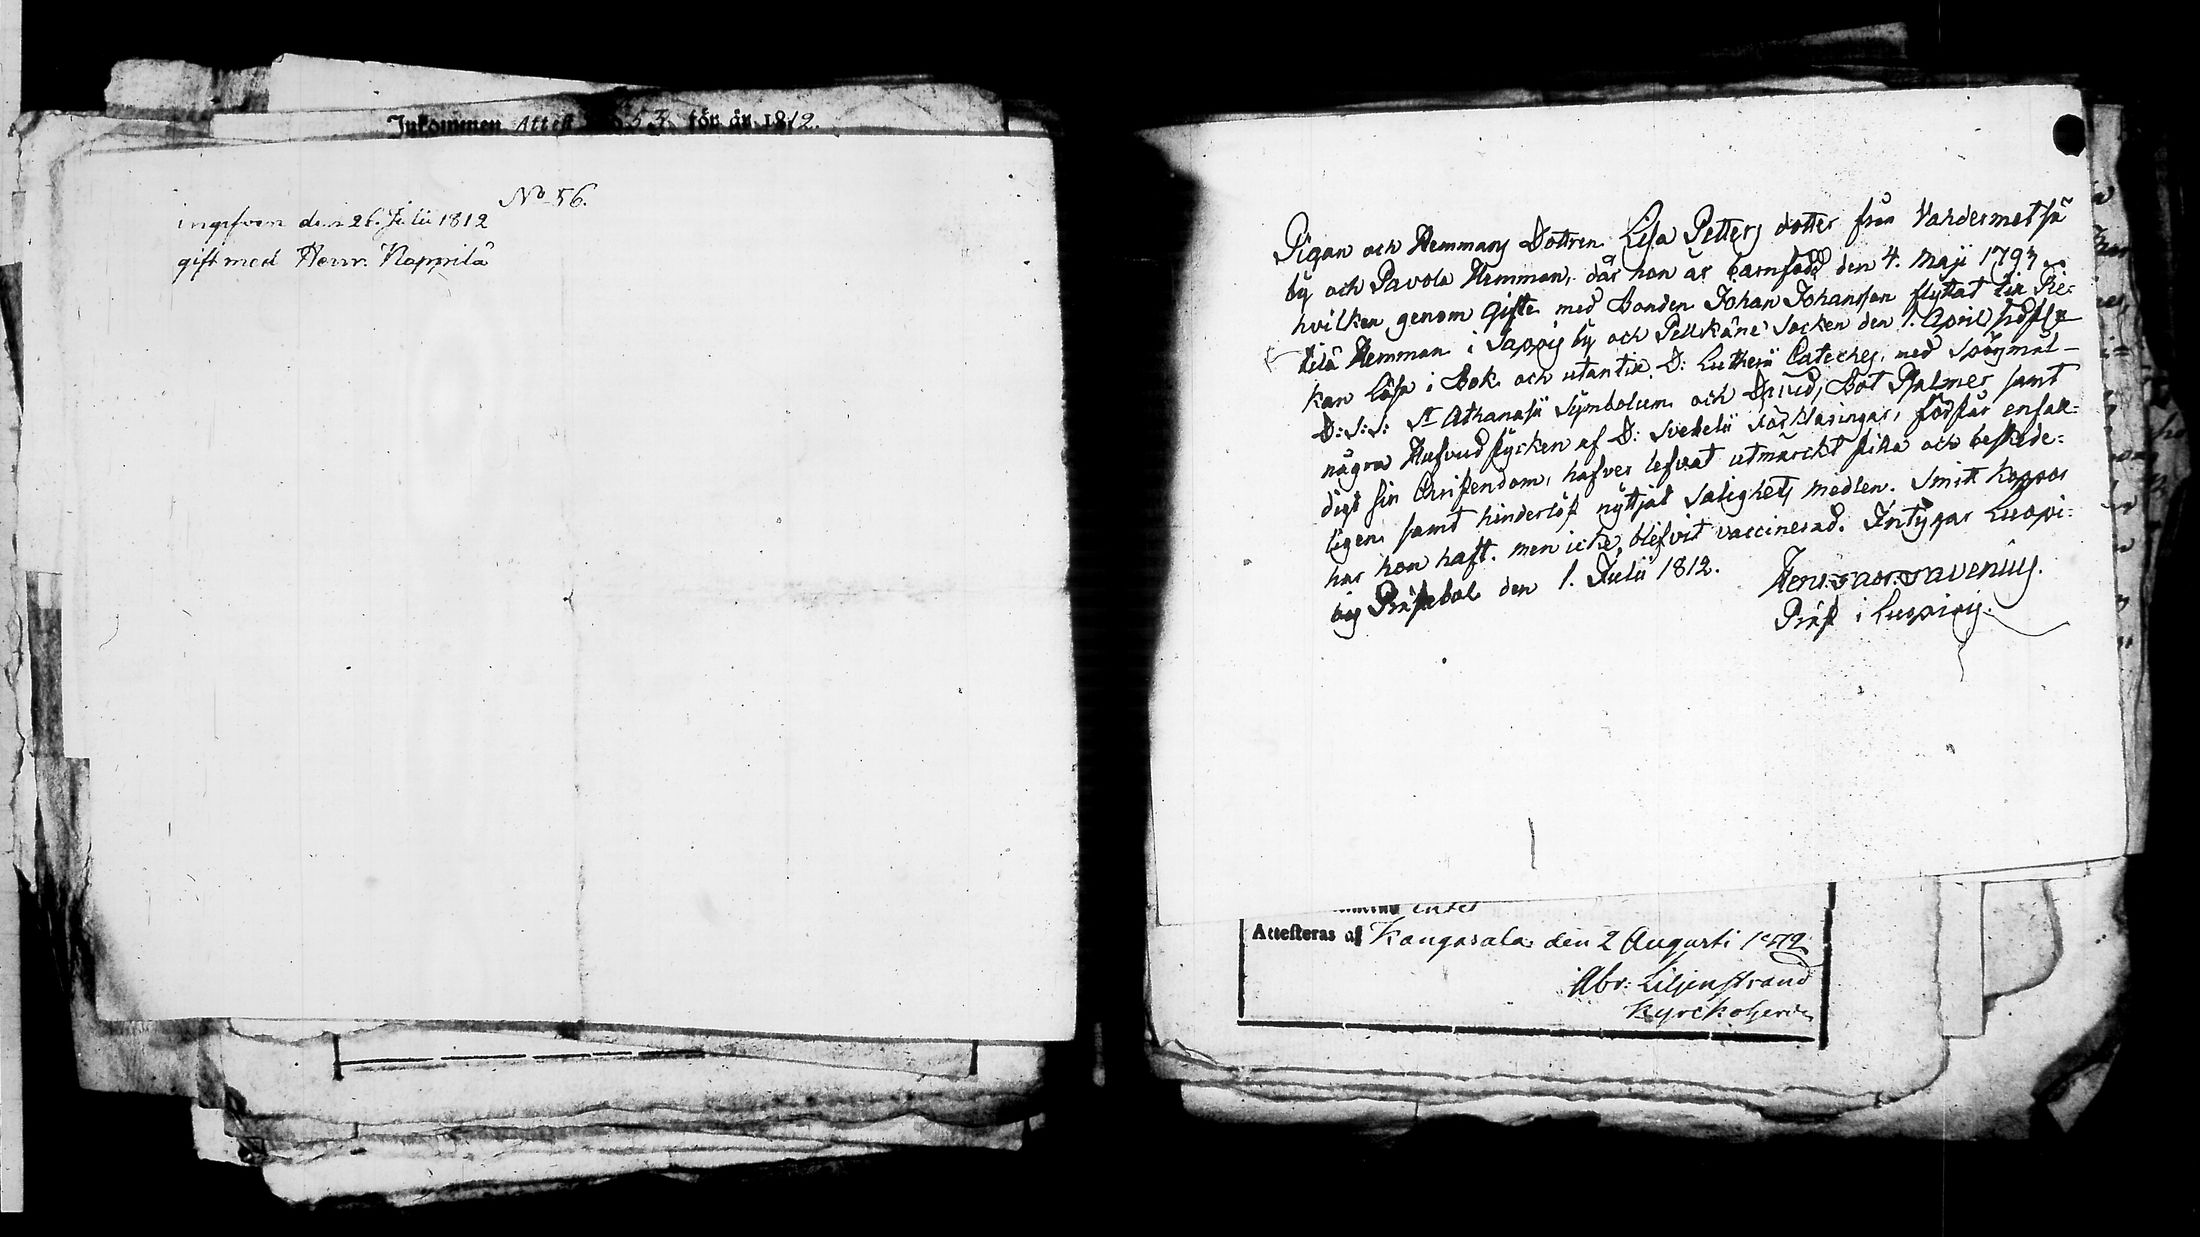 Inkommen Attest 53 för år 1812.
No 56.
ingifven den 26. Julii 1812
gift med Henr. Nappilä
Pigan och Hemmans Dottren Lisa Petters dotter från Vahdermetsä
by och Pavola Hemman, där hon är barnfödd den 4. Maji 1793
hvilken genom gifte med Bonden Johan Johansson flyttat til Rie-
kilä Hemman i Sappis by och Pelkäne Socken den 1. April sidstl
kan läsa i Bok och utantil D: Lutheri Cateches, med Spögmål
D: S: S: St Athanasii Symbolum och Hust, Bot Psalmer, samt
några Hufvudstycken af D: Svebelii Förklaringar, förstår enfal-
digt sin Christendom, hafver lefvat utmärckt stilla och beskede-
ligen samt hinderlöst nyttjat Salighets medlen. Smitt Koppor
har hon haft, men icke blifvit vaccinerad. Intygar Luopi-
ois Prästebol den 1. Julii 1812.
Henr. Savenius.
Präst i Luopiois.
intet
Attesteras af Kangasala den 2 Augusti 1812
Abr: Liljenstrand
Kyrckoherde